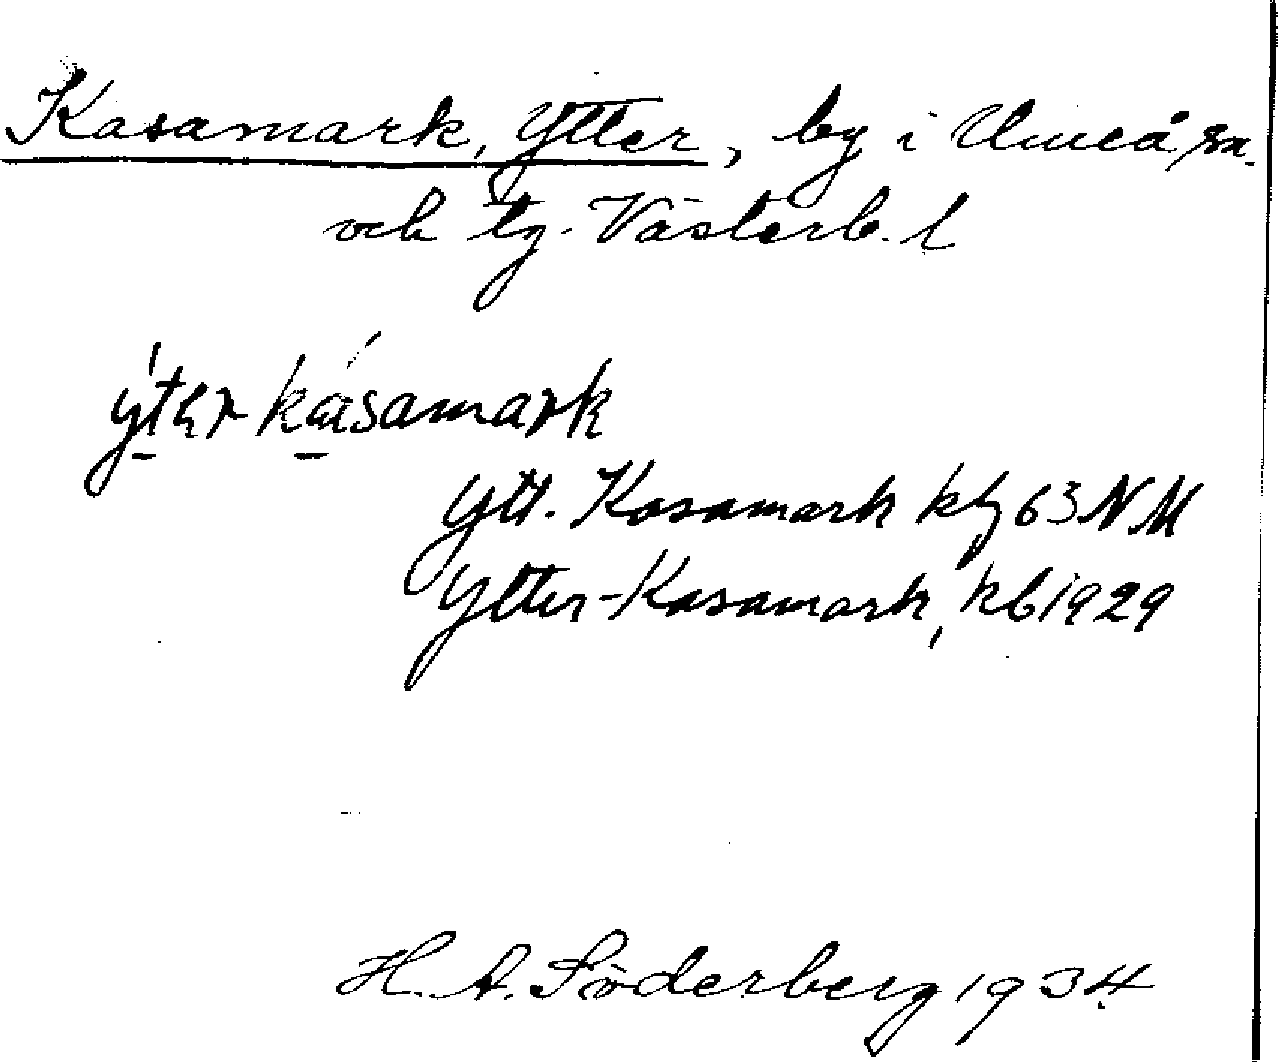 Kasamark, Ytter, by i Umeå sn.
och tg. Västerb. l
ýter kásamark
Ytt. Kasamark kbg 63 NM
Ytter-Kasamark, kb 1929
H. A. Söderberg 1934